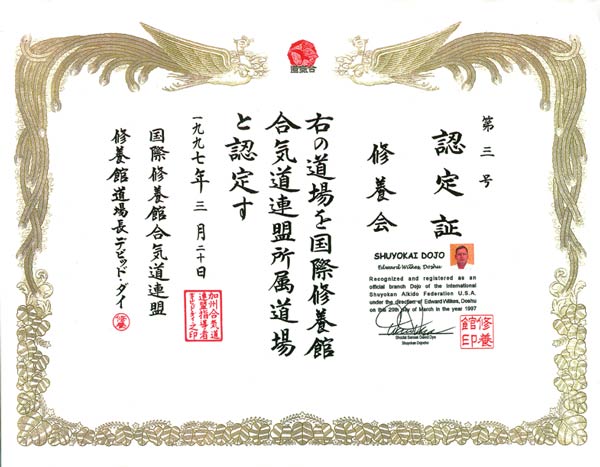 第三号
認定証
修養会
右の道場を国際修養館
合気道連盟所属道場
と認定す
一九九七年三月二十日
国際修養館合気道連盟
修養館道場長デビッド・ダイ
SHUYOKAI DOJO
Edward Wilkes, Doshu
Recognized and registered as an
official branch Dojo of the International
Shuyokan Aikido Federation U.S.A.
under the direction of Edward Wilkes, Doshu
on this 20th day of March in the year 1997
Shodai Sensei David Dye
Shuyokan Dojocho
修養
館印
加州合気道
連盟指導者
之印